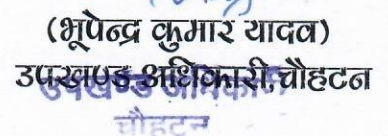 (भूपेन्द्र कुमार यादव)
उपखण्ड अधिकारी, चौहटन
उपखण्ड अधिकारी
चौहटन